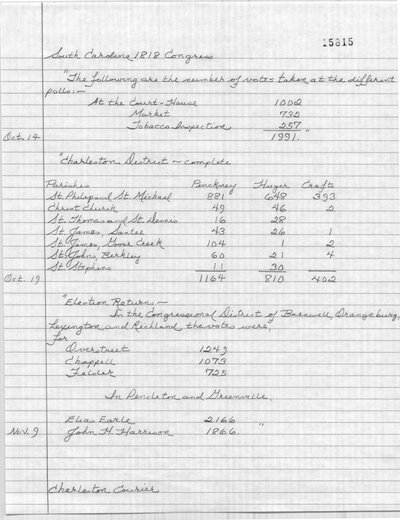 15815
South Carolina 1818 Congress
"The following are the number of votes taken at the different
polls:—
At the Court-House 1002
Market 732
Tobacco Inspection 257
Oct. 14 1991."
"Charleston District — complete
Parishes Pinckney Huger Crafts
St. Philip and St. Michael 881 648 393
Christ Church 49 46 2
St. Thomas and St. Dennis 16 28
St. James, Santee 43 26 1
St. James, Goose Creek 104 1 2
St. Johns, Berkley 60 21 4
St. Stephens 11 30
Oct. 19 1164 810 402
"Election Return.—
In the Congressional District of Barnwell, Orangeburg,
Lexington and Richland the votes were,
for
Overstreet 1249
Chappell 1073
Felder 725
In Pendleton and Greenville,
Elias Earle 2166
Nov. 9 John H. Harrison 1866."
Charleston Courier